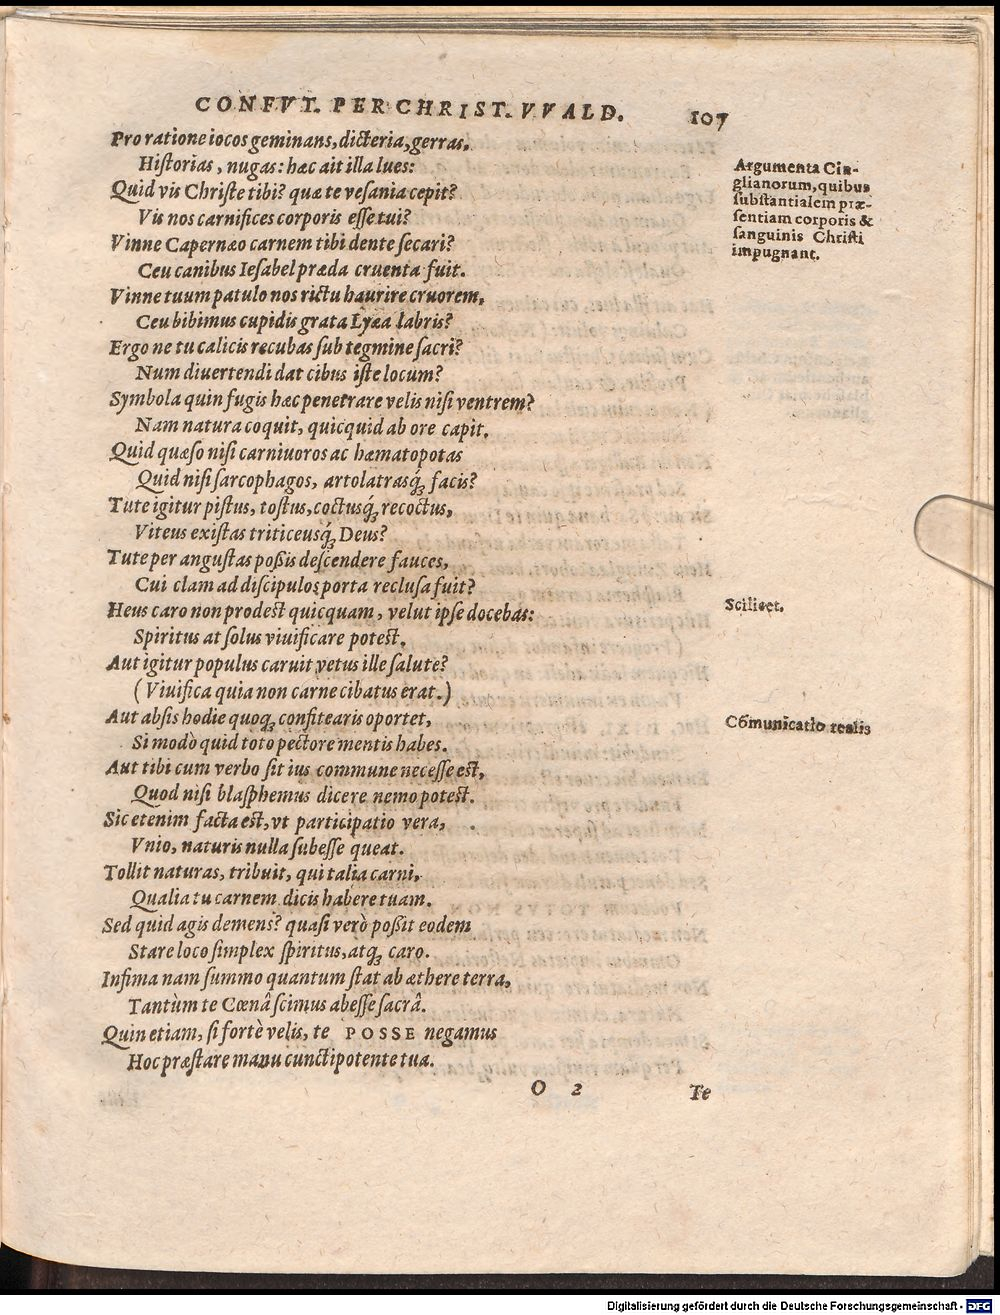 CONFVT. PER CHRIST. VVALD. 107
Pro ratione iocos geminans, dicteria, gerras,
Historias, nugas: hæc ait illa lues:
Quid vis Christe tibi? quæ te vesania cepit?
Vis nos carnifices corporis esse tui?
Vinne Capernæo carnem tibi dente secari?
Ceu canibus Iesabel præda cruenta fuit.
Vinne tuum patulo nos rictu haurire cruorem,
Ceu bibimus cupidis grata Lyæa labris?
Ergo ne tu calicis recubas sub tegmine sacri?
Num diuertendi dat cibus iste locum?
Symbola quin fugis hæc penetrare velis nisi ventrem?
Nam natura coquit, quicquid ab ore capit.
Quid quæso nisi carniuoros ac hæmatopotas
Quid nisi sarcophagos, artolatrasq́; facis?
Tute igitur pistus, tostus, coctusq́; recoctus,
Viteus existas triticeusq́; Deus?
Tute per angustas poßis descendere fauces,
Cui clam ad discipulos porta reclusa fuit?
Heus caro non prodest quicquam, velut ipse docebas:
Spiritus at solus viuificare potest.
Aut igitur populus caruit vetus ille salute?
(Viuifica quia non carne cibatus erat.)
Aut absis hodie quoq; confitearis oportet,
Si modò quid toto pectore mentis habes.
Aut tibi cum verbo sit ius commune necesse est,
Quod nisi blasphemus dicere nemo potest.
Sic etenim facta est, vt participatio vera,
Vnio, naturis nulla subesse queat.
Tollit naturas, tribuit, qui talia carni,
Qualia tu carnem dicis habere tuam.
Sed quid agis demens? quasi verò poßit eodem
Stare loco simplex spiritus, atq; caro.
Infima nam summo quantum stat ab æthere terra,
Tantùm te Cœnâ scimus abesse sacrâ.
Quin etiam, si fortè velis, te POSSE negamus
Hoc præstare manu cunctipotente tua.
O 2 Te
Argumenta Cin-
glianorum, quibus
substantialem præ-
sentiam corporis &
sanguinis Christi
impugnant.
Scilicet.
Cōmunicatio realis
Digitalisierung gefördert durch die Deutsche Forschungsgemeinschaft - DFG